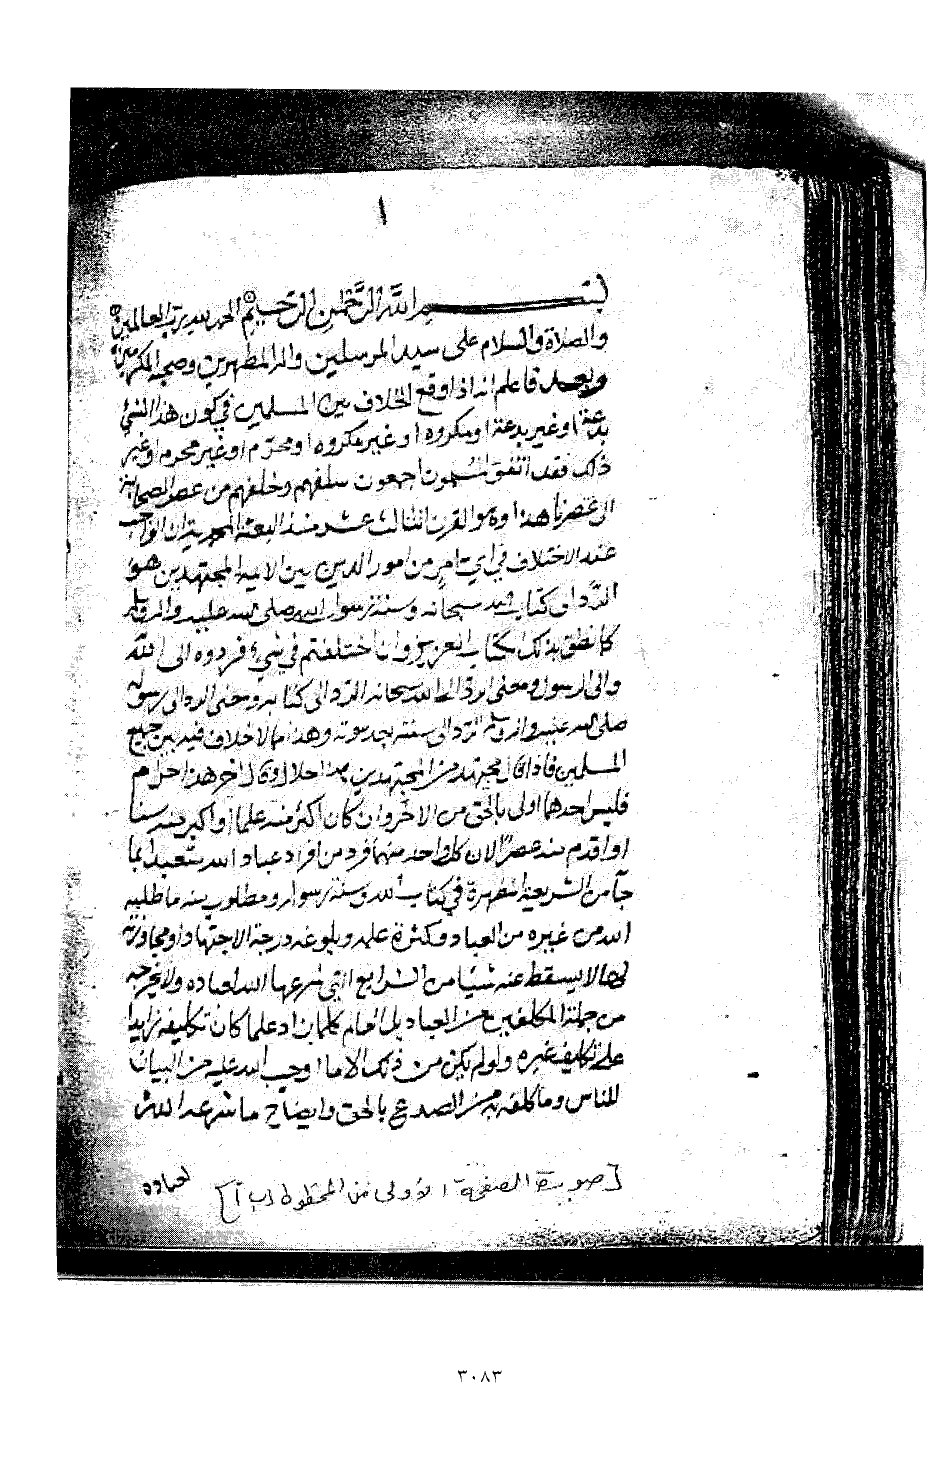 ١
بسم الله الرحمن الرحيم الحمد لله رب العالمين
والصلاة والسلام على سيد المرسلين واله المطهرين وصحبه المكرمين
وبعد فاعلم انه اذا وقع الخلاف بين المسلمين في كون هذا الشيء
بدعة او غير بدعة او مكروه او غير مكروه او محرم او غير محرم او غير
ذلك فقد اتفق المسلمون اجمعون سلفهم وخلفهم من عصر الصحابة
الى عصرنا هذا وهو القرن الثالث عشر منذ البعثة المحمدية ان الواجب
عند الاختلاف في اي امر من امور الدين بين الائمة المجتهدين هو
الرد الى كتاب الله سبحانه وسنة رسول الله صلى الله عليه واله وسلم
كما نطق بذلك الكتاب العزيز وان اختلفتم في شيء فردوه الى الله
والى الرسول ومعنى الرد الى الله سبحانه الرد الى كتابه ومعنى الرد الى رسوله
صلى الله عليه واله وسلم الرد الى سنته بعد موته وهذا مما لا خلاف فيه بين جميع
المسلمين فاذا قال مجتهد من المجتهدين هذا حلال وقال اخر هذا حرام
فليس احدهما اولى بالحق من الاخر وان كان اكثر منه علما او اكبر منه سنا
او اقدم منه عصرا لان كل واحد منهما فرد من افراد عباد الله متعبد بما
جآ من الشريعة المطهرة في كتاب الله وسنة رسوله ومطلوب منه ما طلبه
الله من غيره من العباد وكثرة علمه وبلوغه درجة الاجتهاد او مجاوزته
لها لا يسقط عنه شيئا من الشرايع التي شرعها الله لعباده ولا يخرجه
من جملة المكلفين من العباد بل العالم كلما زاد علما كان تكليفه زايدا
على تكليف غيره ولو لم يكن من ذلك الا ما اوجب الله عليه من البيان
للناس وما كلفه به من الصدع بالحق وايضاح ما شرعه الله
لعباده
[صورة الصفحة الأولى من المخطوط (ب)]
٣٠٨٣